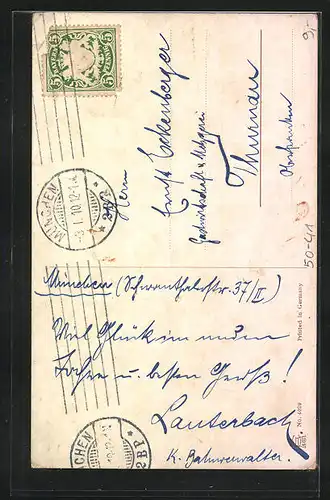 BAYERN
5
5
MÜNCHEN
3 I. 10. 12-1
* 2 B.P. *
MÜNCHEN
* 2 B.P. *
Herrn
Ernst Eckenberger
Gastwirtschaft u. Metzgerei
Thurnau
Oberfranken
München (Schwanthalerstr. 37/II)
Viel Glück im neuen
Jahre u. besten Gruß!
Lauterbach
K. Bahnverwalter.
Printed in Germany
50-41